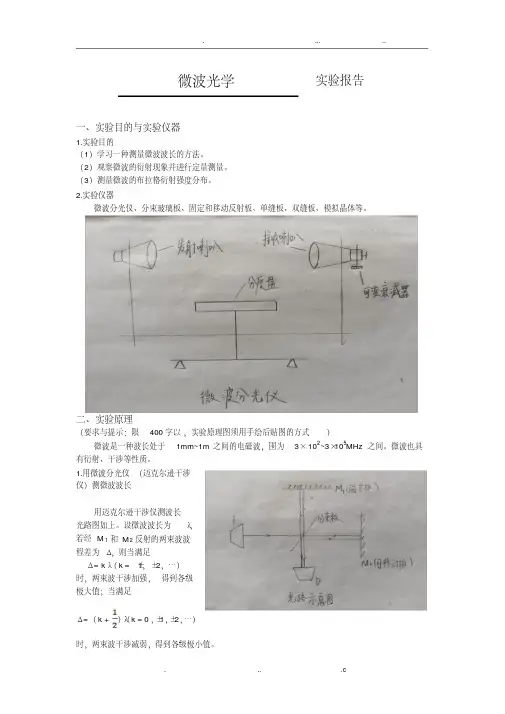 微波光学 实验报告
一、实验目的与实验仪器
1.实验目的
(1)学习一种测量微波波长的方法。
(2)观察微波的衍射现象并进行定量测量。
(3)测量微波的布拉格衍射强度分布。
2.实验仪器
微波分光仪、分束玻璃板、固定和移动反射板、单缝板、双缝板、模拟晶体等。
发射喇叭
接收喇叭
分度盘
可变衰减器
微波分光仪
二、实验原理
(要求与提示:限 400 字以,实验原理图须用手绘后贴图的方式 )
微波是一种波长处于 1mm~1m 之间的电磁波,围为 3×10²~3×10⁵MHz 之间。微波也具
有衍射、干涉等性质。
1.用微波分光仪(迈克尔逊干涉
仪)测微波波长
用迈克尔逊干涉仪测波长
光路图如上。设微波波长为 λ,
若经 M1 和 M2 反射的两束波波
程差为 Δ, 则当满足
Δ= k λ(k = ±1, ±2, …)
时,两束波干涉加强, 得到各级
极大值;当满足
Δ=(k + 1/2)λ(k = 0 , ±1 , ±2 , …)
时,两束波干涉减弱,得到各级极小值。
分束板
光路示意图
. .. .c